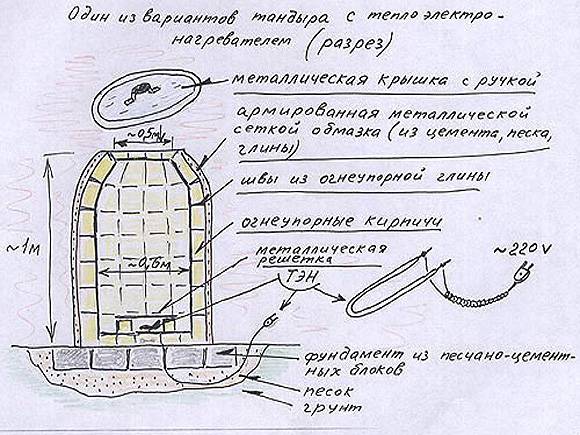 Один из вариантов тандыра с теплоэлектро-
нагревателем (разрез)
металлическая крышка с ручкой
армированная металлической
сеткой обмазка (из цемента, песка,
глины)
~0,5м
швы из огнеупорной глины
огнеупорные кирпичи
~1м
металлическая
решетка
~0,6м
ТЭН
~220V
фундамент из песчано-цемент-
ных блоков
песок
грунт